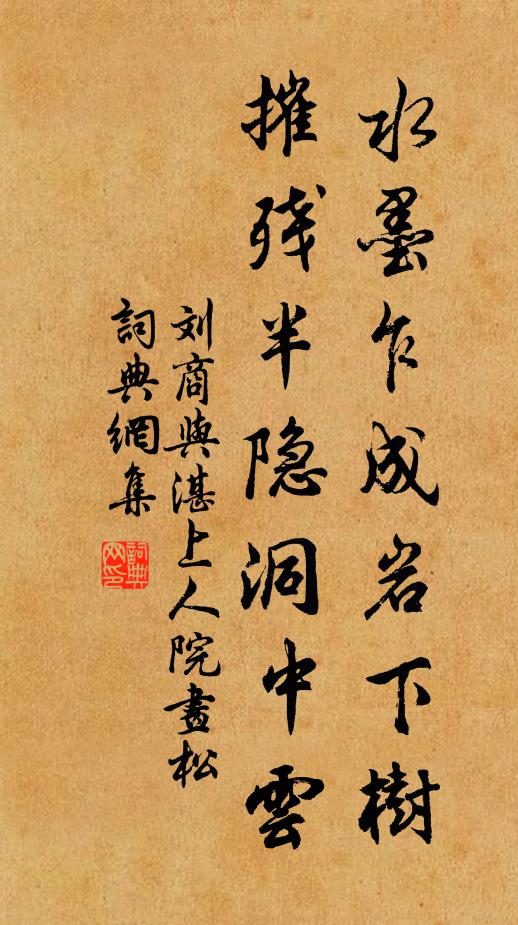 水墨乍成岩下樹
摧残半隐洞中雲
刘商與湛上人院畫松
詞典網集
詞典網印